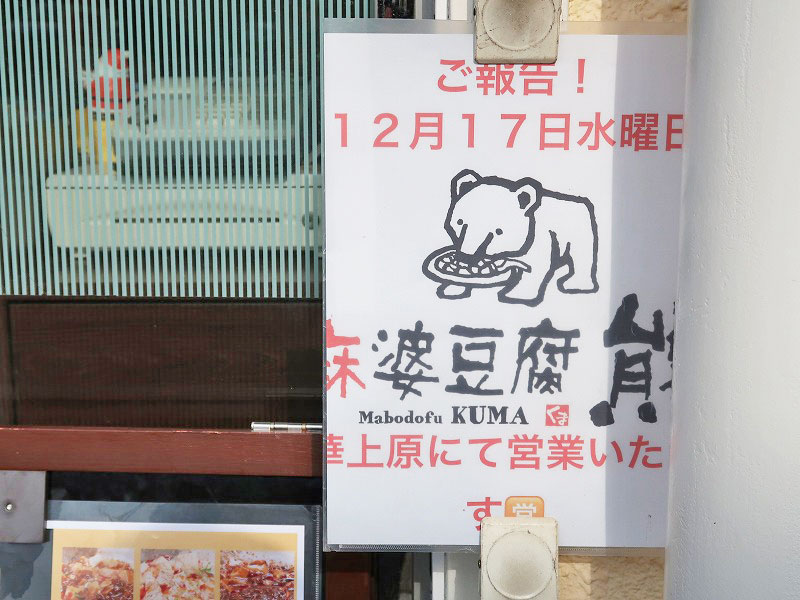 ご報告！
12月17日水曜日
麻婆豆腐 熊
Mabodofu KUMA くま
華上原にて営業いた
す営